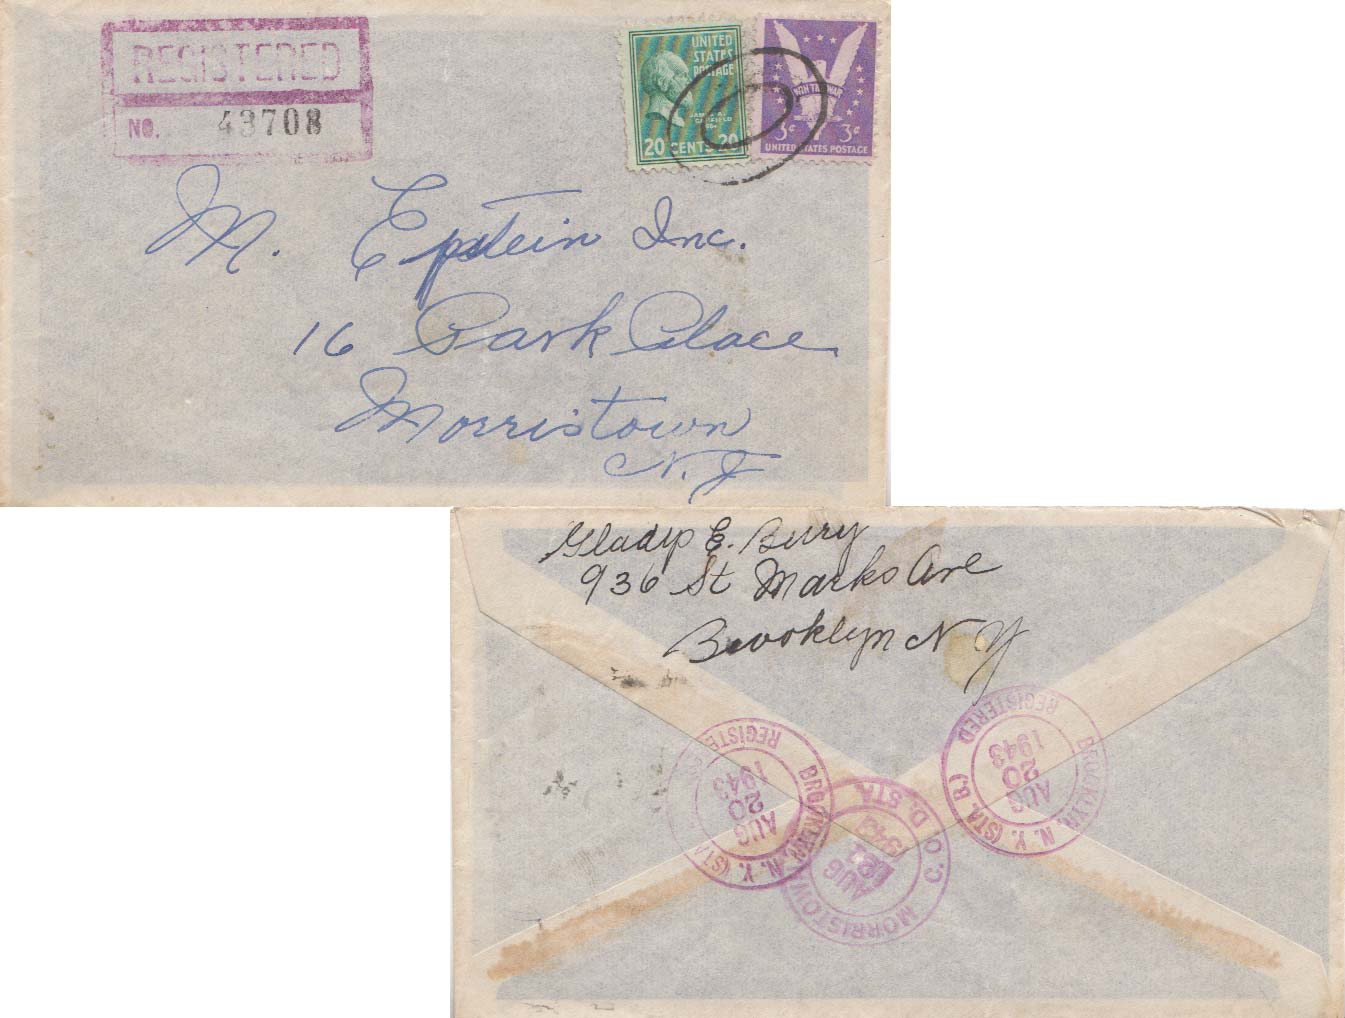 REGISTERED
NO. 43708
UNITED
STATES
POSTAGE
JAMES A.
GARFIELD
20 CENTS 20
WIN THE WAR
3¢ 3¢
UNITED STATES POSTAGE
M. Epstein Inc.
16 Park Place
Morristown
N. J
Gladys E. Berry
936 St Marks Ave
Brooklyn N Y
BROOKLYN, N. Y. (STA
REGISTERED
AUG
20
1943
MORRISTOWN
C. O. D. STA.
AUG
21
1943
BROOKLYN, N. Y. (STA. B.)
REGISTERED
AUG
20
1943